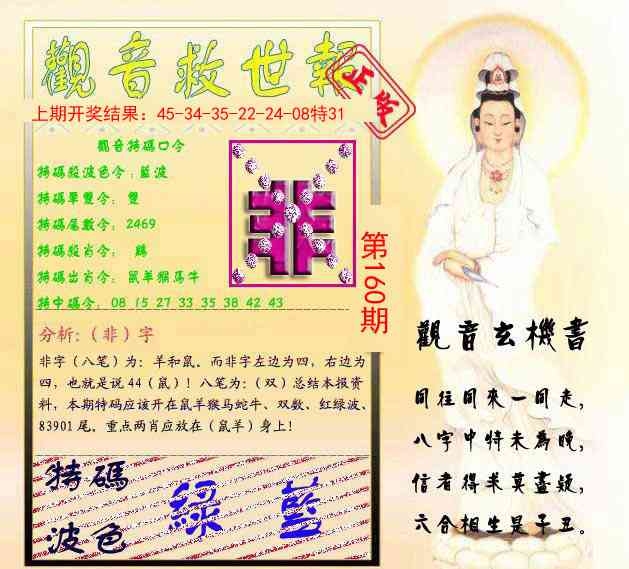 觀音救世報
正版
上期开奖结果：45-34-35-22-24-08特31
觀音特碼口令
特碼殺波色令：藍波
特碼單雙令： 雙
特碼尾數令： 2469
特碼殺肖令： 鷄
特碼出肖令： 鼠羊猴馬牛
特中碼令： 08 15 27 33 35 38 42 43
非
第160期
分析:（非）字
非字（八笔）为：羊和鼠。而非字左边为四，右边为
四，也就是说 44（鼠）！八笔为：（双）总结本报资
料，本期特码应该开在鼠羊猴马蛇牛、双数、红绿波、
83901 尾。重点两肖应放在（鼠羊）身上！
特碼
波色
綠 藍
觀音玄機書
同往同來一同走，
八字中特未為晚，
信者得来莫盡疑，
六合相生是子丑。